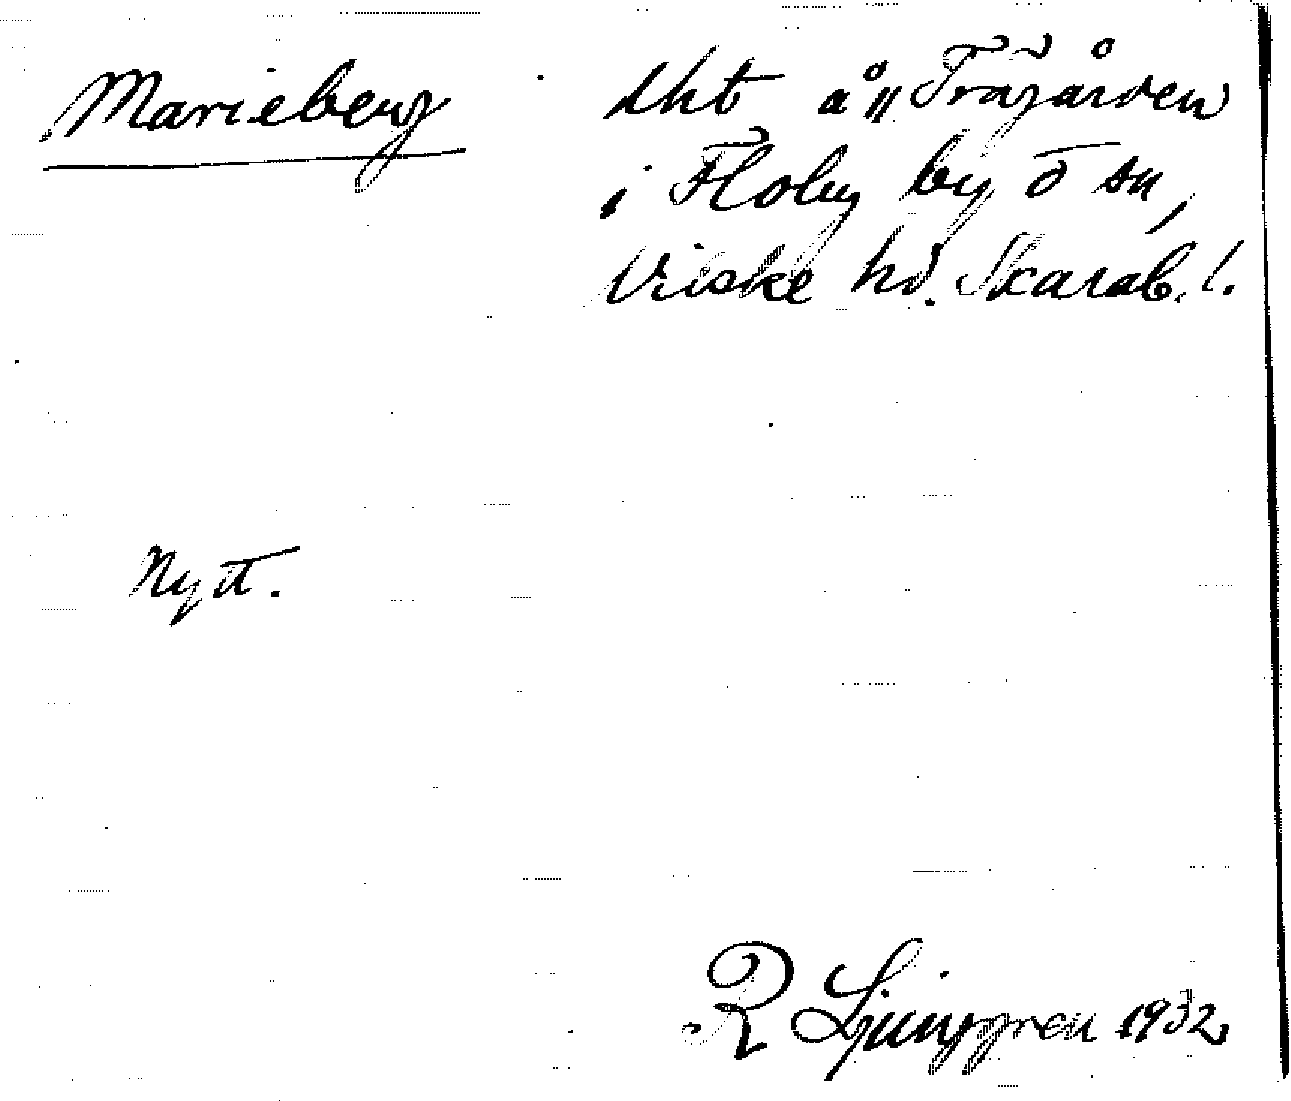 Marieberg
lht å "Trågården
i Floby by o sn,
Vilske hd. Skarab. l.
Nytt.
R Ljunggren 1932